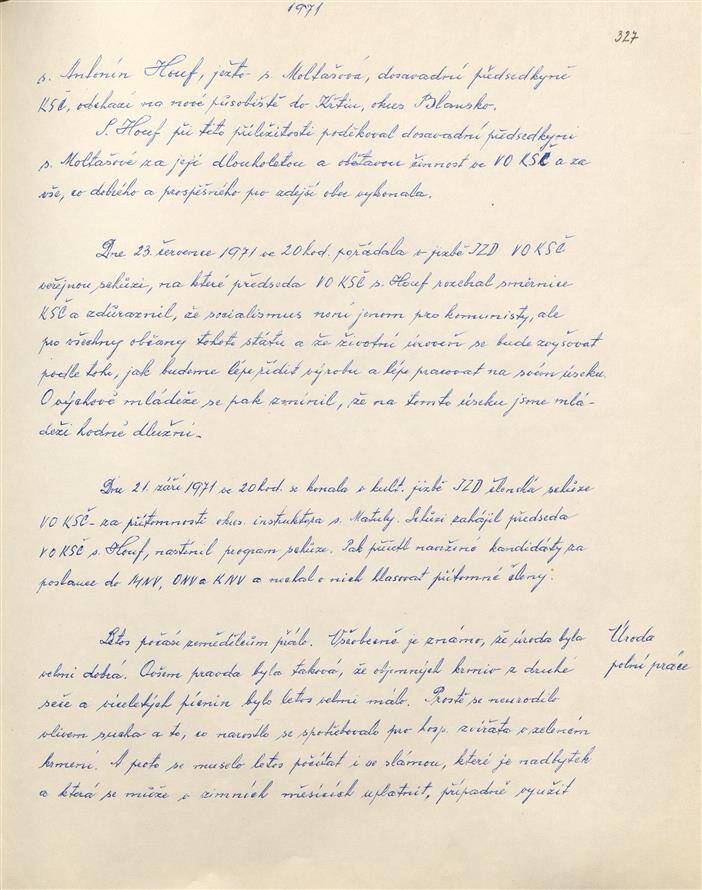 1971
327
s. Antonín Houf, ježto s. Moltašová, dosavadní předsedkyně
KSČ, odchází na nové působiště do Křtin, okres Blansko.
S. Houf při této příležitosti poděkoval dosavadní předsedkyni
s. Moltašové za její dlouholetou a obětavou činnost ve VO KSČ a za
vše, co dobrého a prospěšného pro zdejší obec vykonala.
Dne 23. července 1971 ve 20 hod. pořádala v jizbě JZD VO KSČ
veřejnou schůzi, na které předseda VO KSČ s. Houf rozebral směrnice
KSČ a zdůraznil, že socialismus není jenom pro komunisty, ale
pro všechny občany tohoto státu a že životní úroveň se bude zvyšovat
podle toho, jak budeme lépe řídit výrobu a lépe pracovat na svém úseku.
O výchově mládeže se pak zmínil, že na tomto úseku jsme mlá-
deži hodně dlužni.
Dne 21. září 1971 ve 20 hod. se konala v kult. jizbě JZD členská schůze
VO KSČ - za přítomnosti okres. instruktora s. Matuly. Schůzi zahájil předseda
VO KSČ s. Houf, nastínil program schůze. Pak přečetl navržené kandidáty za
poslance do MNV, ONV a KNV a nechal o nich hlasovat přítomné členy.
Letos počasí zemědělcům přálo. Všeobecně je známo, že úroda byla
Úroda
velmi dobrá. Ovšem pravda byla taková, že objemných krmiv z druhé
polní práce
seče a víceletých pícnin bylo letos velmi málo. Prostě se neurodilo
vlivem sucha a to, co narostlo se spotřebovalo pro hosp. zvířata v zeleném
krmení. A proto se muselo letos počítat i se slámou, které je nadbytek
a která se může v zimních měsících uplatnit, případně využít